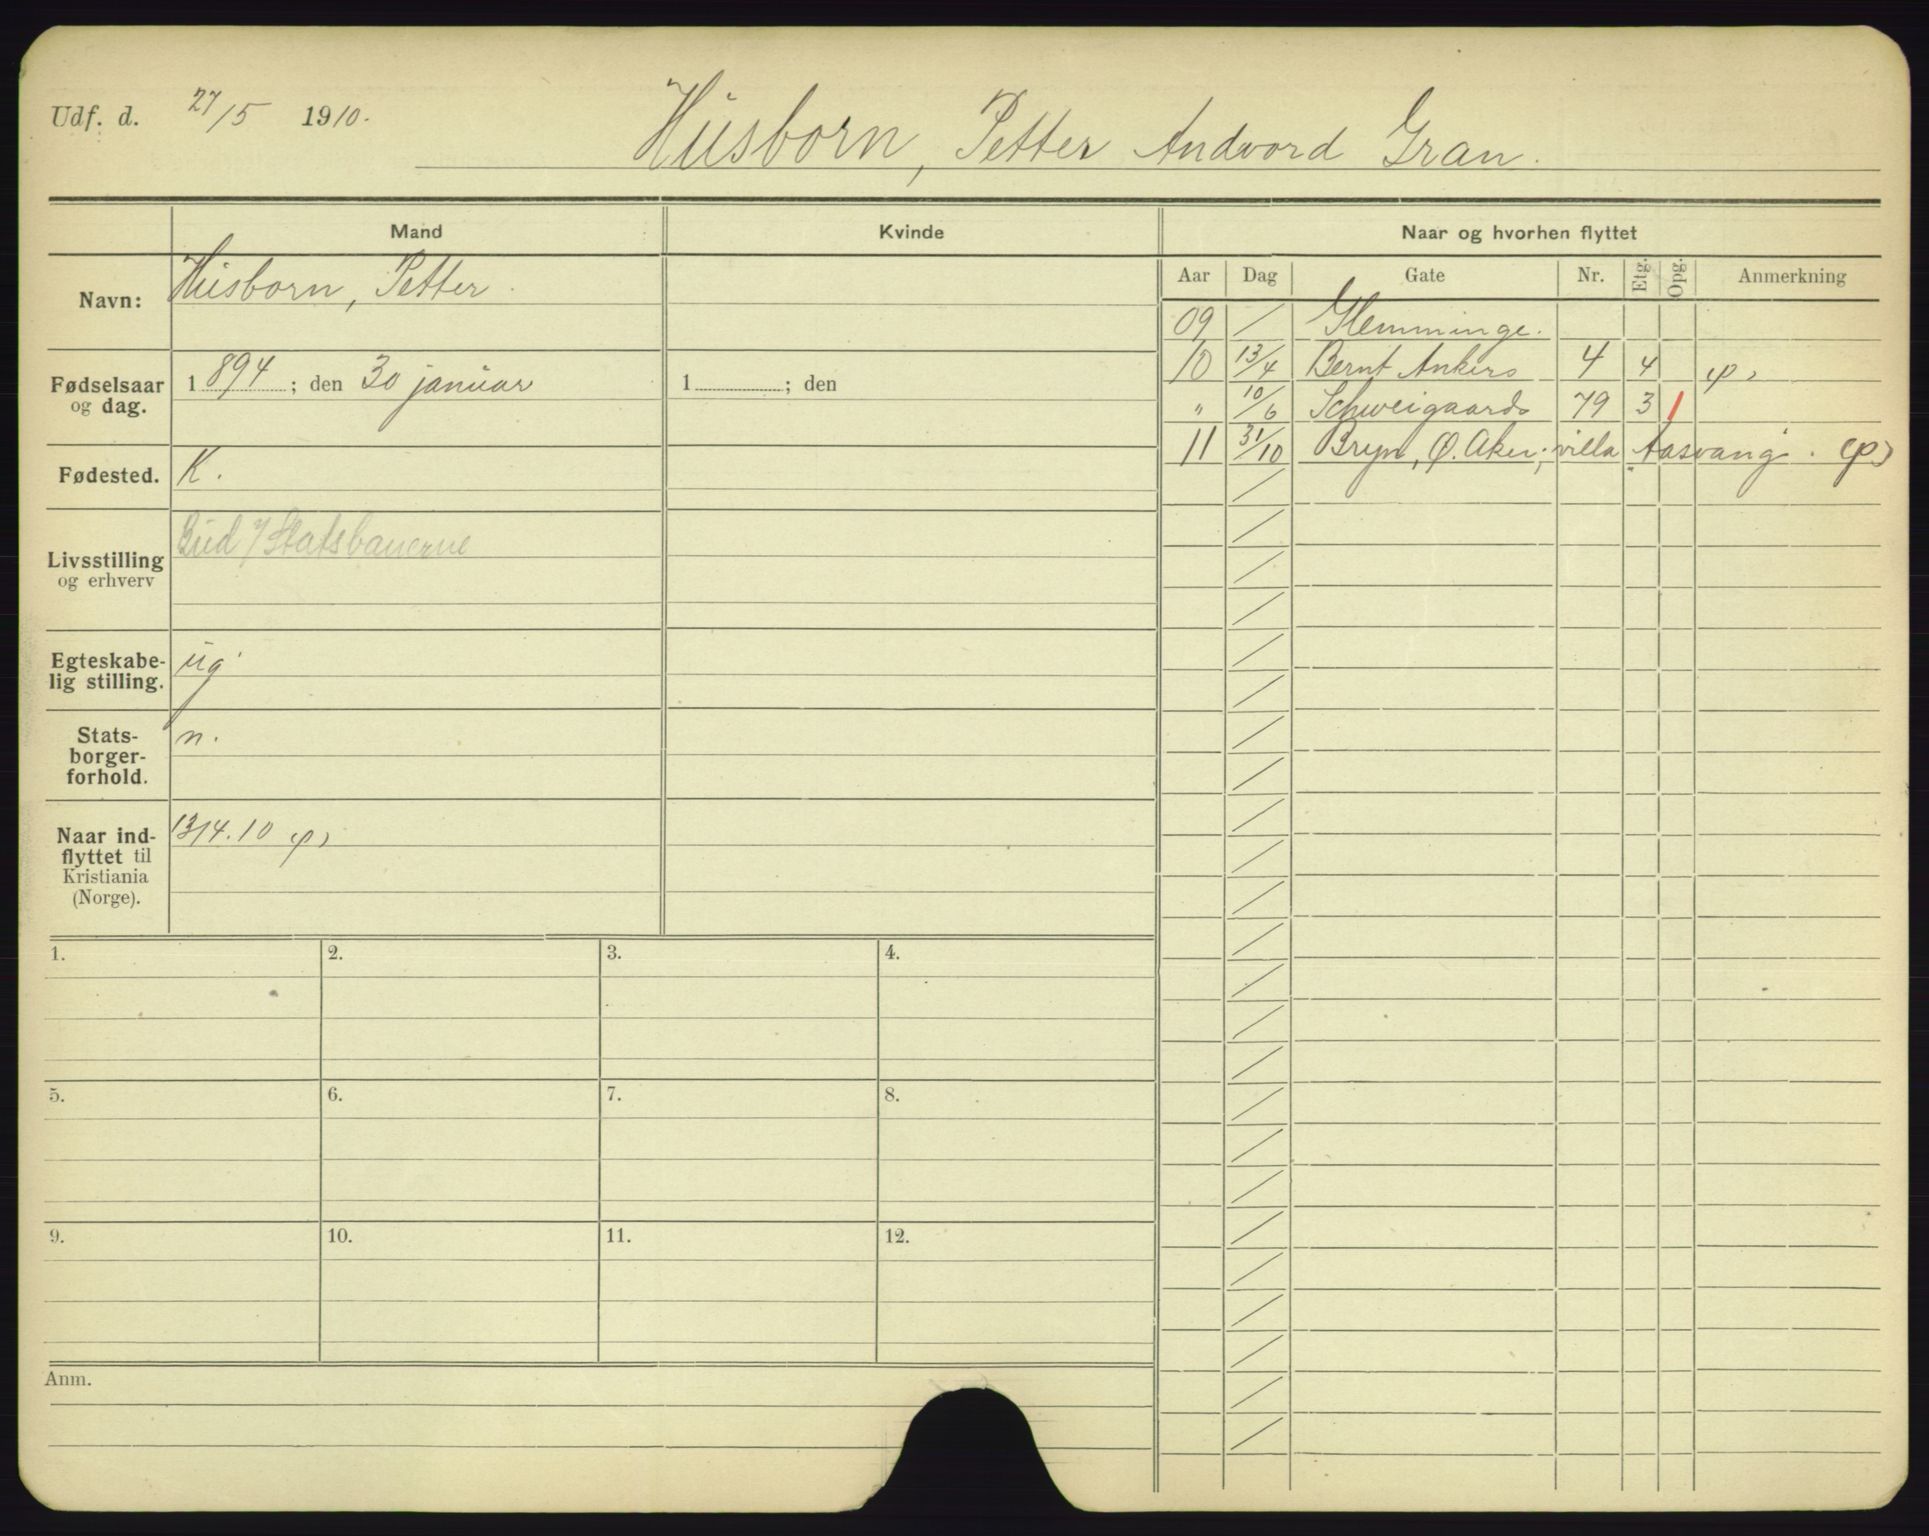 Udf. d. 27/5 1910.
Husborn, Petter Andvord Gran.
Mand
Kvinde
Naar og hvorhen flyttet
Navn: Husborn, Petter.
Fødselsaar og dag. 1894; den 30 januar
1 ; den
Fødested. K.
Livsstilling og erhverv
Bud v/ Statsbanerne
Egteskabe-
lig stilling. ug.
Stats-
borger-
forhold. n.
Naar ind-
flyttet til
Kristiania
(Norge). 13/4.10 p)
Aar Dag Gate Nr. Etg. Opg. Anmerkning
09 / Glemminge.
10 13/4 Bernt Ankers 4 4 p)
" 10/6 Schweigaards 79 3 1
11 31/10 Bryn, Ø. Aker, villa "Aasvang". (p)
1. 2. 3. 4.
5. 6. 7. 8.
9. 10. 11. 12.
Anm.